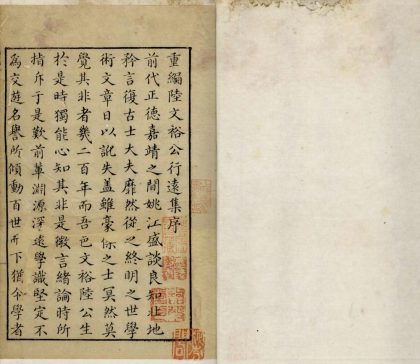 重編陸文裕公行遠集序
前代正德嘉靖之間姚江盛談良知北地
矜言復古士大夫靡然從之終明之世學
術文章日以訛失蓋雖豪傑之士冥然莫
覺其非者幾二百年而吾邑文裕陸公生
於是時獨能心知其非是微言緒論時所
指斥于是歎前輩淵源深遠學識堅定不
為交遊名譽所傾動百世而下猶令學者